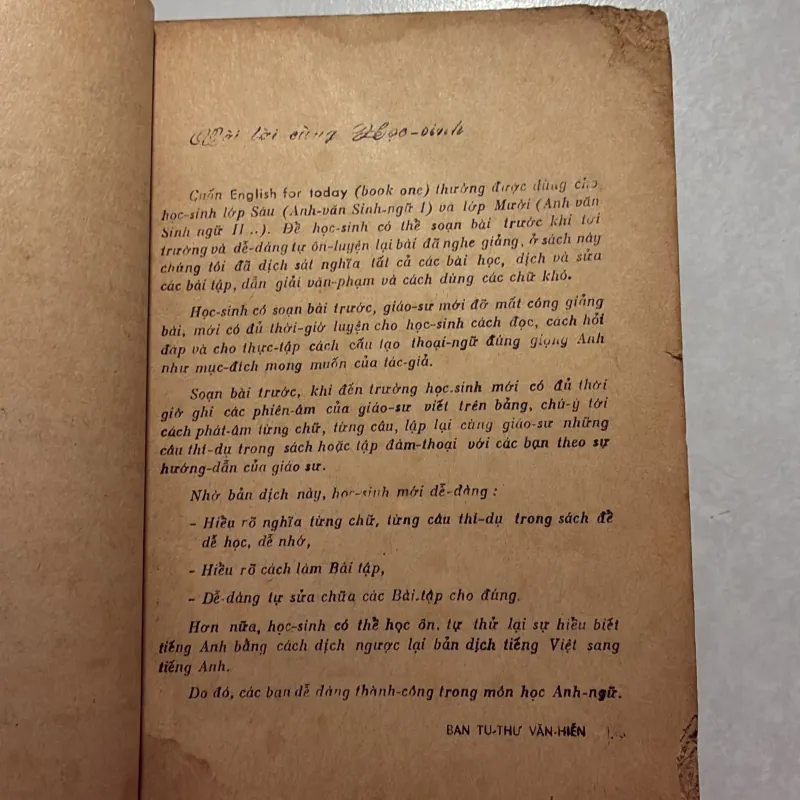 Mấy lời cùng Học-sinh
Cuốn English for today (book one) thường được dùng cho
học-sinh lớp Sáu (Anh-văn Sinh-ngữ I) và lớp Mười (Anh văn
Sinh ngữ II ..). Để học-sinh có thể soạn bài trước khi tới
trường và dễ-dàng tự ôn-luyện lại bài đã nghe giảng, ở sách này
chúng tôi đã dịch sát nghĩa tất cả các bài học, dịch và sửa
các bài tập, dẫn giải văn-phạm và cách dùng các chữ khó.
Học-sinh có soạn bài trước, giáo-sư mới đỡ mất công giảng
bài, mới có đủ thời-giờ luyện cho học-sinh cách đọc, cách hỏi
đáp và cho thực-tập cách cấu tạo thoại-ngữ đúng giọng Anh
như mục-đích mong muốn của tác-giả.
Soạn bài trước, khi đến trường học.sinh mới có đủ thời
giờ ghi các phiên-âm của giáo-sư viết trên bảng, chú-ý tới
cách phát-âm từng chữ, từng câu, lập lại cùng giáo-sư những
câu thí-dụ trong sách hoặc tập đàm-thoại với các bạn theo sự
hướng-dẫn của giáo sư.
Nhờ bản dịch này, học-sinh mới dễ-dàng :
- Hiểu rõ nghĩa từng chữ, từng câu thí-dụ trong sách để
dễ học, dễ nhớ,
- Hiểu rõ cách làm Bài tập,
- Dễ-dàng tự sửa chữa các Bài.tập cho đúng.
Hơn nữa, học-sinh có thể học ôn. tự thử lại sự hiểu biết
tiếng Anh bằng cách dịch ngược lại bản dịch tiếng Việt sang
tiếng Anh.
Do đó, các bạn dễ dàng thành-công trong môn học Anh-ngữ.
BAN TU-THƯ VĂN-HIẾN